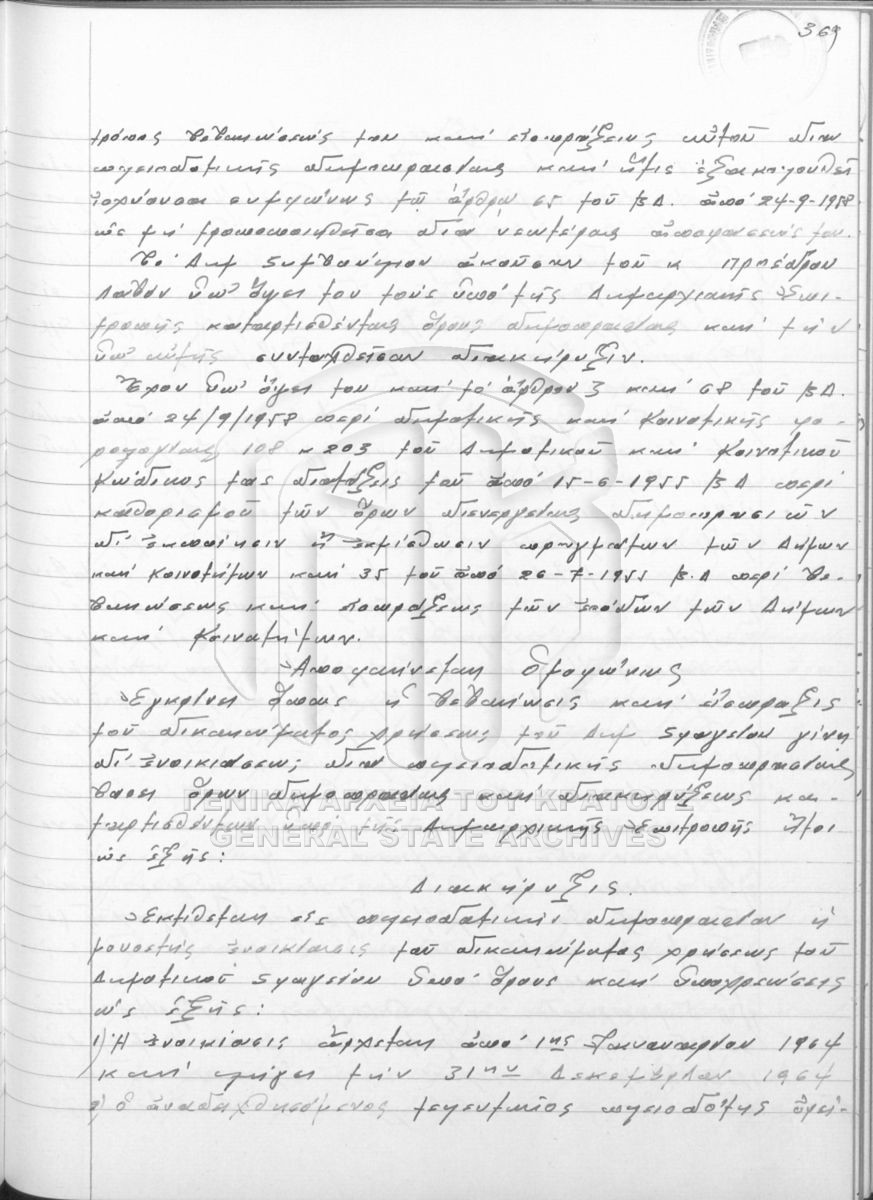 369
τρόπος βεβαιώσεώς του και εἰσπράξεως αὐτοῦ διὰ
πλειοδοτικῆς δημοπρασίας και ἥτις ἐξακολουθεῖ
ἰσχύουσα συμφώνως τῷ ἄρθρῳ 65 τοῦ Β.Δ. ἀπό 24-9-1958
ὡς μή τροποποιηθεῖσα διὰ νεωτέρας ἀποφάσεώς του.
Τό Δημ Συμβούλιον ἀκοῦσαν τοῦ κ Προέδρου
Λαβόν ὑπ' ὄψει του τούς ὑπό τῆς Δημαρχιακῆς Ἐπι-
τροπῆς καταρτισθέντας ὅρους δημοπρασίας και τήν
ὑπ' αὐτῆς συνταχθεῖσαν διακήρυξιν.
Ἔχον ὑπ' ὄψει του και τό ἄρθρον 3 και 68 τοῦ Β.Δ.
ἀπό 24/9/1958 περί δημοτικῆς και Κοινοτικῆς φο-
ρολογίας, 108 κ 203 τοῦ Δημοτικοῦ και Κοινοτικοῦ
Κώδικος τας διατάξεις τοῦ ἀπό 15-6-1955 Β Δ περί
καθορισμοῦ τῶν ὅρων διενεργείας δημοπρασιῶν
δι' ἐκποίησιν ἤ ἐκμίσθωσιν πραγμάτων τῶν Δήμων
και Κοινοτήτων και 35 τοῦ ἀπό 26-7-1955 Β.Δ περί βε-
βαιώσεως και εἰσπράξεως τῶν ἐσόδων τῶν Δήμων
και Κοινοτήτων.
Ἀποφαίνεται Ὁμοφώνως
Ἐγκρίνει ὅπως ἡ βεβαίωσις και εἴσπραξις
τοῦ δικαιώματος χρήσεως τοῦ Δημ Σφαγείου γίνῃ
δι' ἐνοικιάσεως διὰ πλειοδοτικῆς δημοπρασίας
βάσει ὅρων δημοπρασίας και διακηρύξεως κα-
ταρτισθέντων ὑπό τῆς Δημαρχιακῆς Ἐπιτροπῆς ἤτοι
ὡς ἑξῆς:
Διακήρυξις.
Ἐκτίθεται εἰς πλειοδοτικήν δημοπρασίαν ἡ
μονοετής ἐνοικίασις τοῦ δικαιώματος χρήσεως τοῦ
Δημοτικοῦ Σφαγείου ὑπό ὅρους και ὑποχρεώσεις
ὡς ἑξῆς:
1) Ἡ ἐνοικίασις ἄρχεται ἀπό 1ης Ἰανουαρίου 1964
και λήγει τήν 31ην Δεκεμβρίου 1964
2) Ὁ ἀναδειχθησόμενος τελευταῖος πλειοδότης ὀφεί-
ΓΕΝΙΚΑ ΑΡΧΕΙΑ ΤΟΥ ΚΡΑΤΟΥΣ
GENERAL STATE ARCHIVES